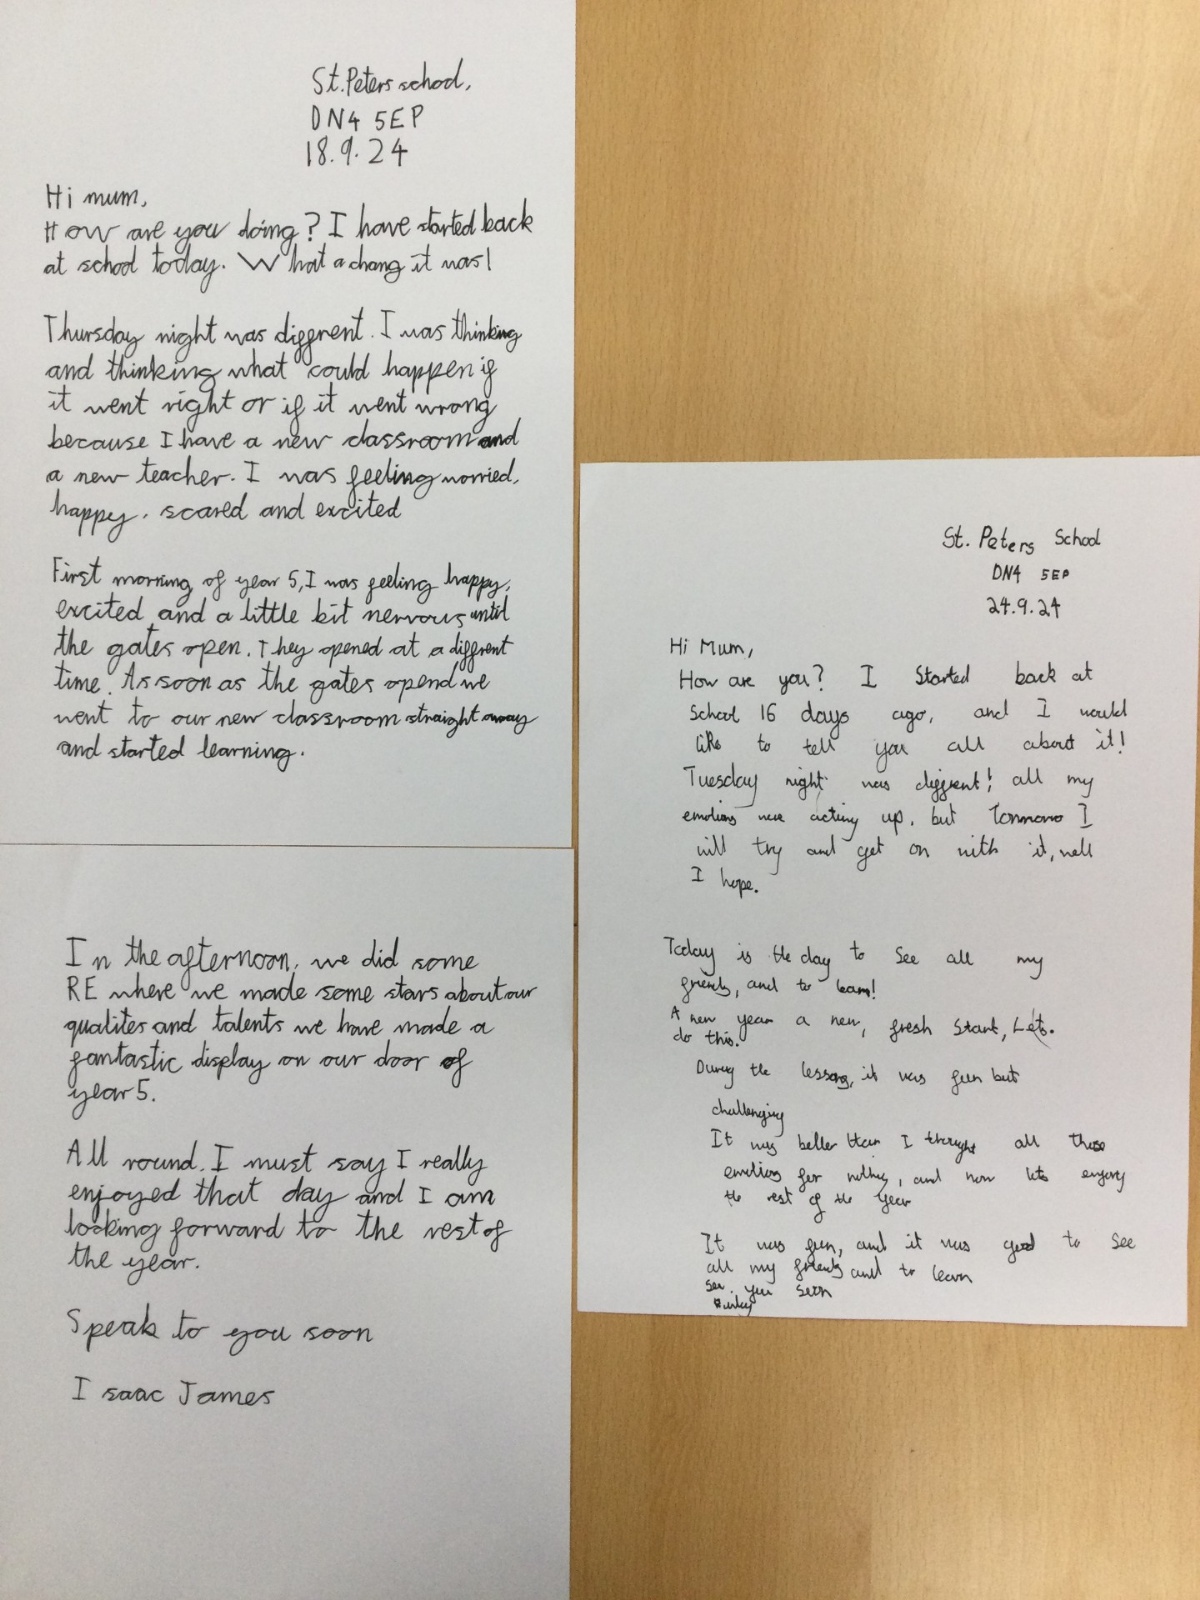 St. Peters school,
DN4 5EP
18.9.24
Hi mum,
How are you doing? I have started back
at school today. What a chang it was!
Thursday night was diffrent. I was thinking
and thinking what could happen if
it went right or if it went wrong
because I have a new classroom and
a new teacher. I was feeling worried,
happy, scared and excited
First morning of year 5, I was feeling happy,
excited and a little bit nervous until
the gates open. They opened at a diffrent
time. As soon as the gates opend we
went to our new classroom straight away
and started learning.
In the afternoon, we did some
RE where we made some stars about our
qualites and talents we have made a
fantastic display on our door of
year 5.
All round, I must say I really
enjoyed that day and I am
looking forward to the rest of
the year.
Speak to you soon
Isaac James
St. Peters School
DN4 5EP
24.9.24
Hi Mum,
How are you? I Started back at
School 16 days ago, and I would
like to tell you all about it!
Tuesday night was diffrent! all my
emotions were acting up, but I
will try and get on with it, well
I hope.
Today is the day to See all my
friends, and to learn!
A new year a new, fresh Start, Lets.
do this.
During the lessons, it was fun but
challenging
It was better than I thought all those
emotions for nothing, and now lets enjoy
the rest of the year
It was fun, and it was good to See
all my friends and to learn
see you soon